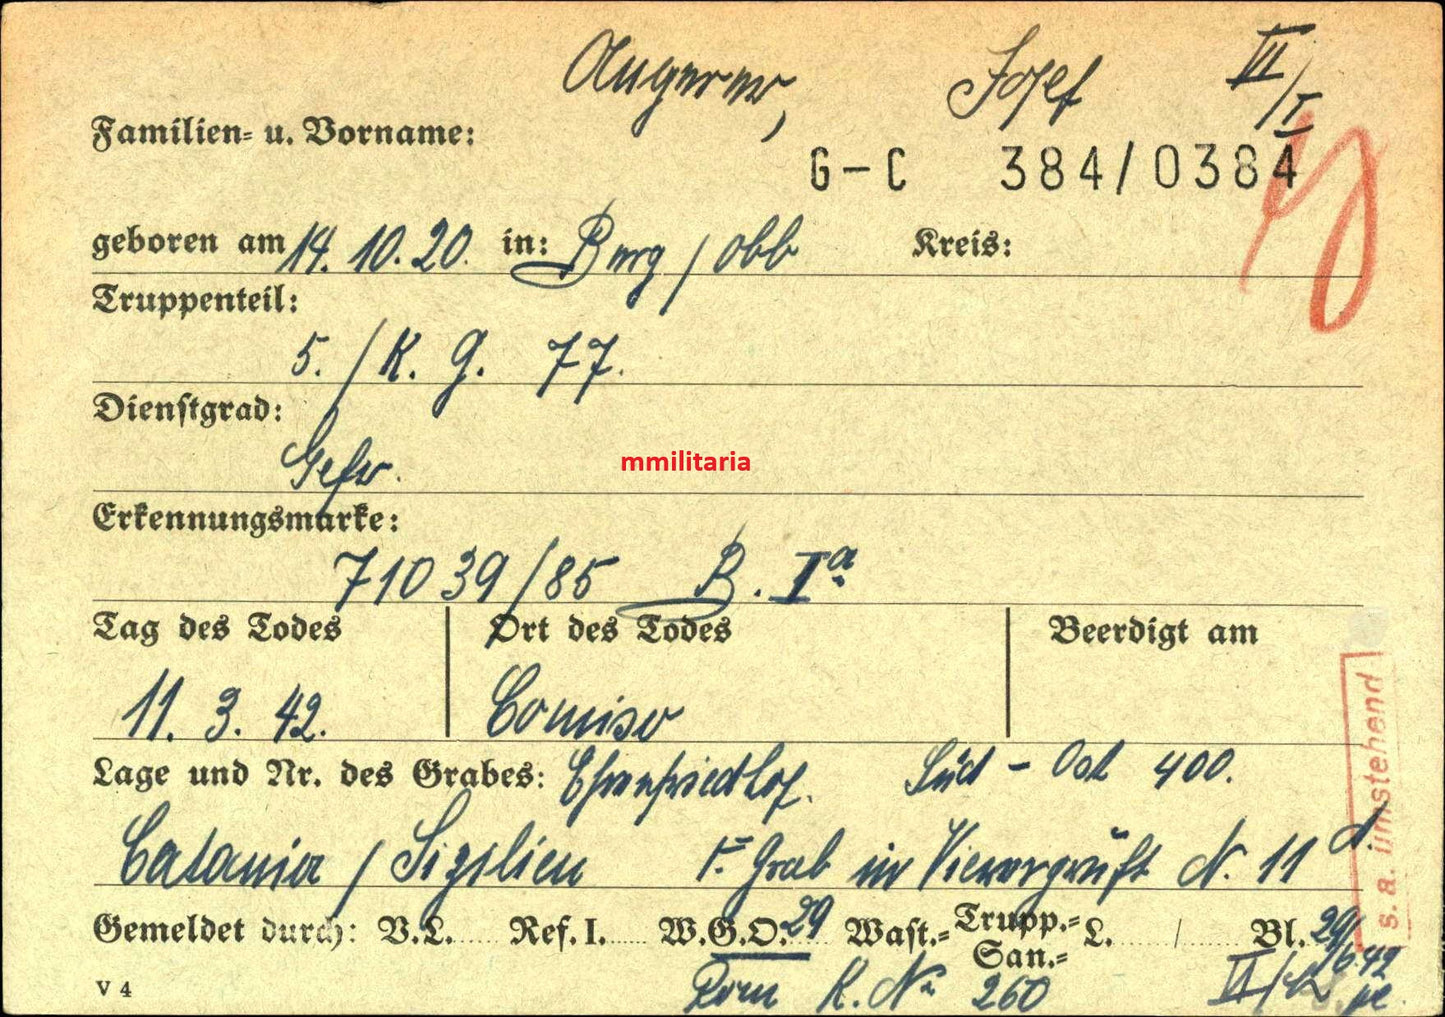 Angerer, Josef VII/I
Familien- u. Vorname:
G-C 384/0384
geboren am 14. 10. 20. in: Burg / Obb Kreis:
Truppenteil:
5. / K. G. 77.
Dienstgrad:
Gefr.
mmilitaria
Erkennungsmarke:
71039/85 B. Ia
Tag des Todes Ort des Todes Beerdigt am
11. 3. 42. Comiso
Lage und Nr. des Grabes: Ehrenfriedhof. Süd - Ost 400.
Catania / Sizilien Grab in Vierergruft N. 11 d.
s. a. umstehend
Gemeldet durch: V.L. Ref. I. W.G.O. 29 Wast.= Trupp.= San.= L. / Bl. 29
Rom K. Nr. 260
V 4